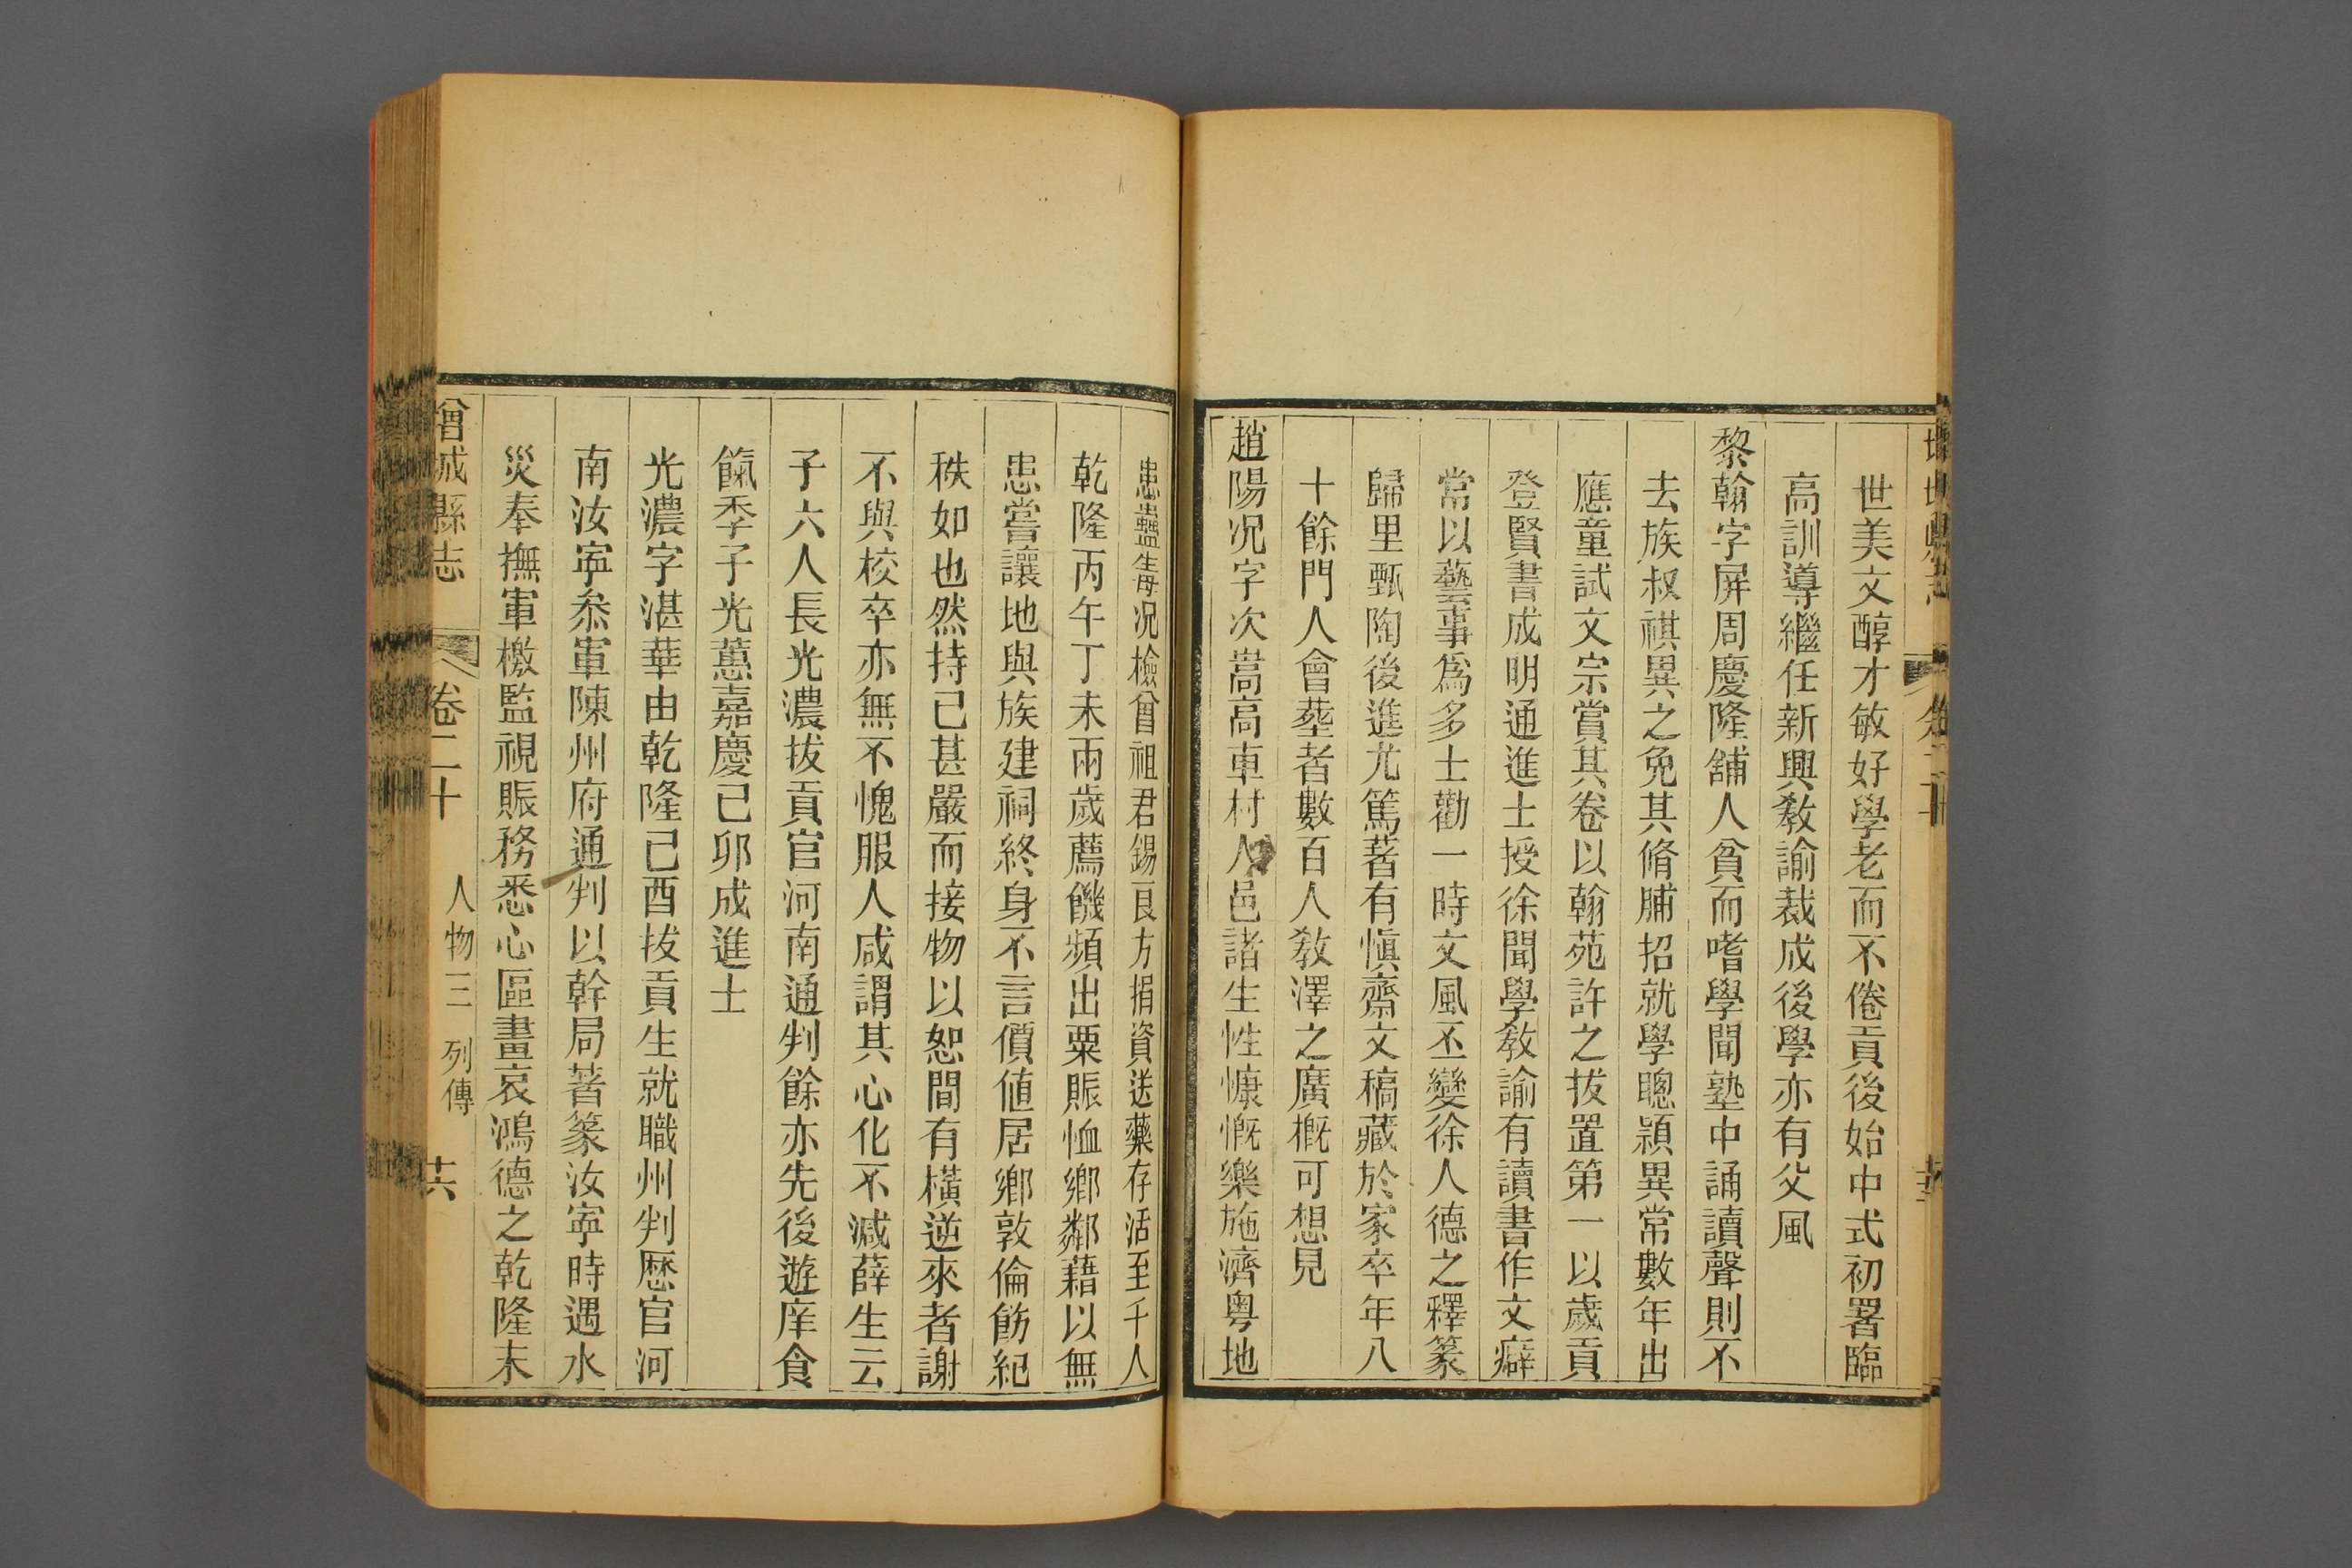 世美文醇才敏好學老而不倦貢後始中式初署臨
高訓導繼任新興教諭裁成後學亦有父風
黎翰字屏周慶隆舖人貧而嗜學聞塾中誦讀聲則不
去族叔祺異之免其脩脯招就學聰穎異常數年出
應童試文宗賞其卷以翰苑許之拔置第一以歲貢
登賢書成明通進士授徐聞學教諭有讀書作文癖
常以藝事為多士勸一時文風丕變徐人德之釋篆
歸里甄陶後進尤篤著有慎齋文稿藏於家卒年八
十餘門人會塟者數百人教澤之廣概可想見
趙陽況字次嵩高車村人邑諸生性慷慨樂施濟粵地
患蠱毒況檢曾祖君錫良方捐資送藥存活至千人
乾隆丙午丁未兩歲薦饑頻出粟賑恤鄉鄰藉以無
患嘗讓地與族建祠終身不言價值居鄉敦倫飭紀
秩如也然持己甚嚴而接物以恕間有橫逆來者謝
不與校卒亦無不愧服人咸謂其心化不減薛生云
子六人長光濃拔貢官河南通判餘亦先後遊庠食
餼季子光蕙嘉慶己卯成進士
光濃字湛華由乾隆己酉拔貢生就職州判歷官河
南汝寧叅軍陳州府通判以幹局著篆汝寧時遇水
災奉撫軍檄監視賑務悉心區畫哀鴻德之乾隆末
增城縣志 卷二十 人物三 列傳 十六